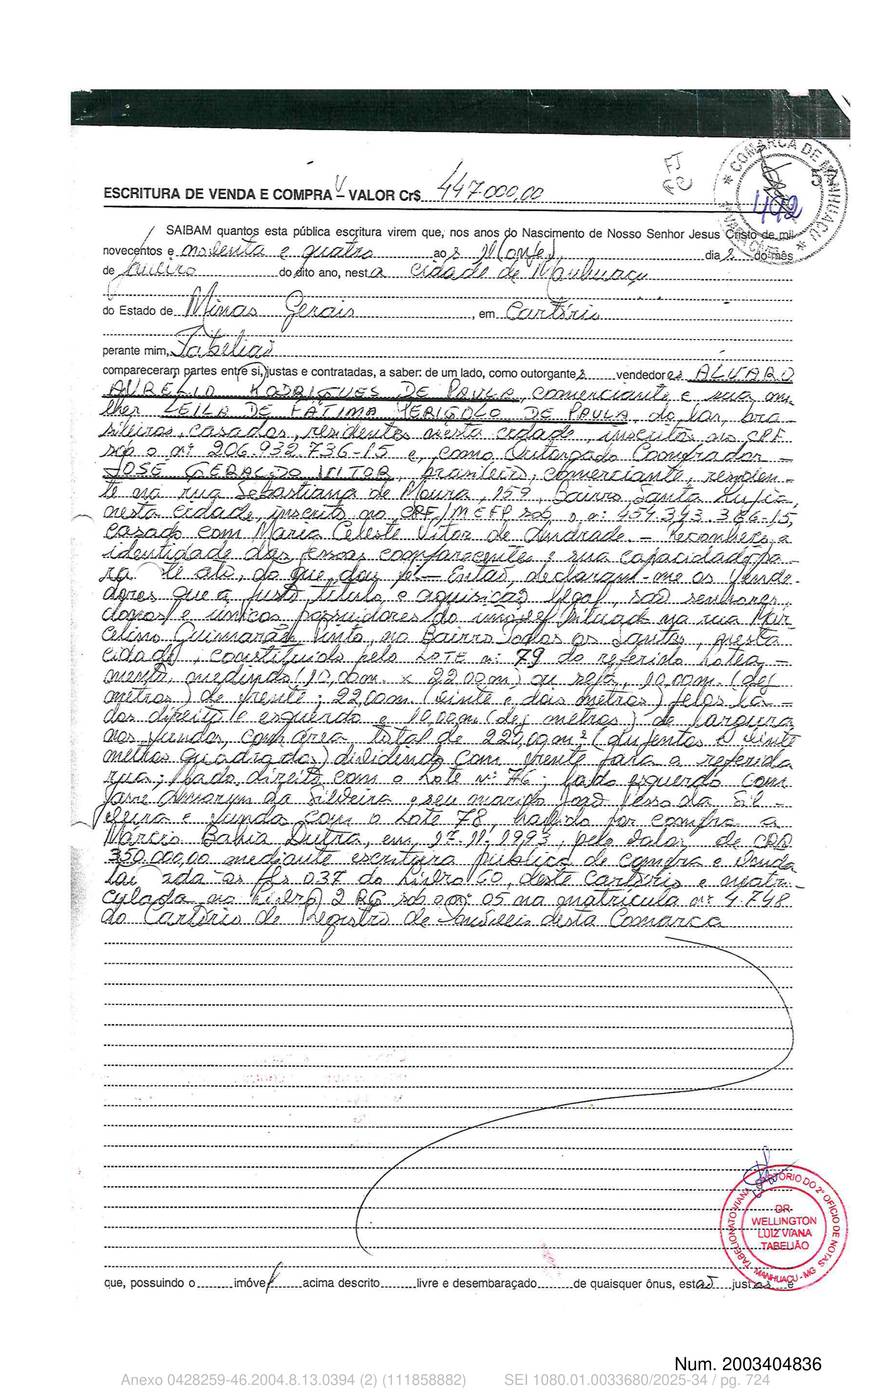 COMARCA DE MANHUAÇU
492
ESCRITURA DE VENDA E COMPRA – VALOR Cr$ 447.000,00
SAIBAM quantos esta pública escritura virem que, nos anos do Nascimento de Nosso Senhor Jesus Cristo de mil
novecentos e noventa e quatro aos 11 (onze) dias do mês
de janeiro do dito ano, nesta cidade de Manhuaçu
do Estado de Minas Gerais, em Cartório
perante mim, Tabelião
compareceram partes entre si, justas e contratadas, a saber: de um lado, como outorgantes vendedores ALVARO
AURELIO RODRIGUES DE PAULA, comerciante e sua mu
lher LEILA DE FÁTIMA DE PAULA, do lar, bra
sileiros, casados, residentes nesta cidade, inscritos no CPF
sob o nº 206.932.736-15 e, como Outorgado Comprador –
JOSE GERALDO VITOR, brasileiro, comerciante, residen-
te na rua Sebastiana de Moura, 159, Bairro Santa Luzia,
nesta cidade, inscrito no CPF/MEFP sob o nº 454.343.386-15,
casado com Maria Celeste Vitor de Andrade. – Reconheço a
identidade das pessoas comparecentes e sua capacidade pa-
ra te ato, do que, dou fé – Então, declaram-me os vende-
dores que a justo título e aquisição legal, são senhores,
donos e únicos possuidores do imóvel situado na rua Mar
celino Guimarães Pinto, no Bairro Todos os Santos, nesta
cidade, constituído pelo LOTE nº 79 do referido lotea-
mento, medindo (10,00m. x 22,00m.) ou seja, 10,00m. (dez
metros) de frente; 22,00m. (vinte e dois metros) pelos la-
dos direito e esquerdo e 10,00m (dez metros) de largura
nos fundos, com área total de 220,00m² (duzentos e vinte
metros quadrados) dividindo com frente para a referida
rua; lado direito com o Lote nº 76; lado esquerdo com
Amorym da Silveira e seu marido João da Sil-
veira e fundos com o Lote 78, havido por compra a
Márcio Bahia Dutra, em, 17.11.1993, pelo valor de CR$
350.000,00 mediante escritura pública de compra e venda
la ada às fls 037 do Livro 60, deste Cartório e matri-
culada no Livro 2 RG sob o nº 05 na matrícula nº 4.748
do Cartório de Registro de Imóveis desta Comarca
TABELIONATO VIANA CARTÓRIO DO 2º OFÍCIO DE NOTAS
DR.
WELLINGTON
LUIZ VIANA
TABELIÃO
MANHUAÇU - MG
que, possuindo o imóvel acima descrito livre e desembaraçado de quaisquer ônus, estão justos e
Num. 2003404836
Anexo 0428259-46.2004.8.13.0394 (2) (111858882) SEI 1080.01.0033680/2025-34 / pg. 724